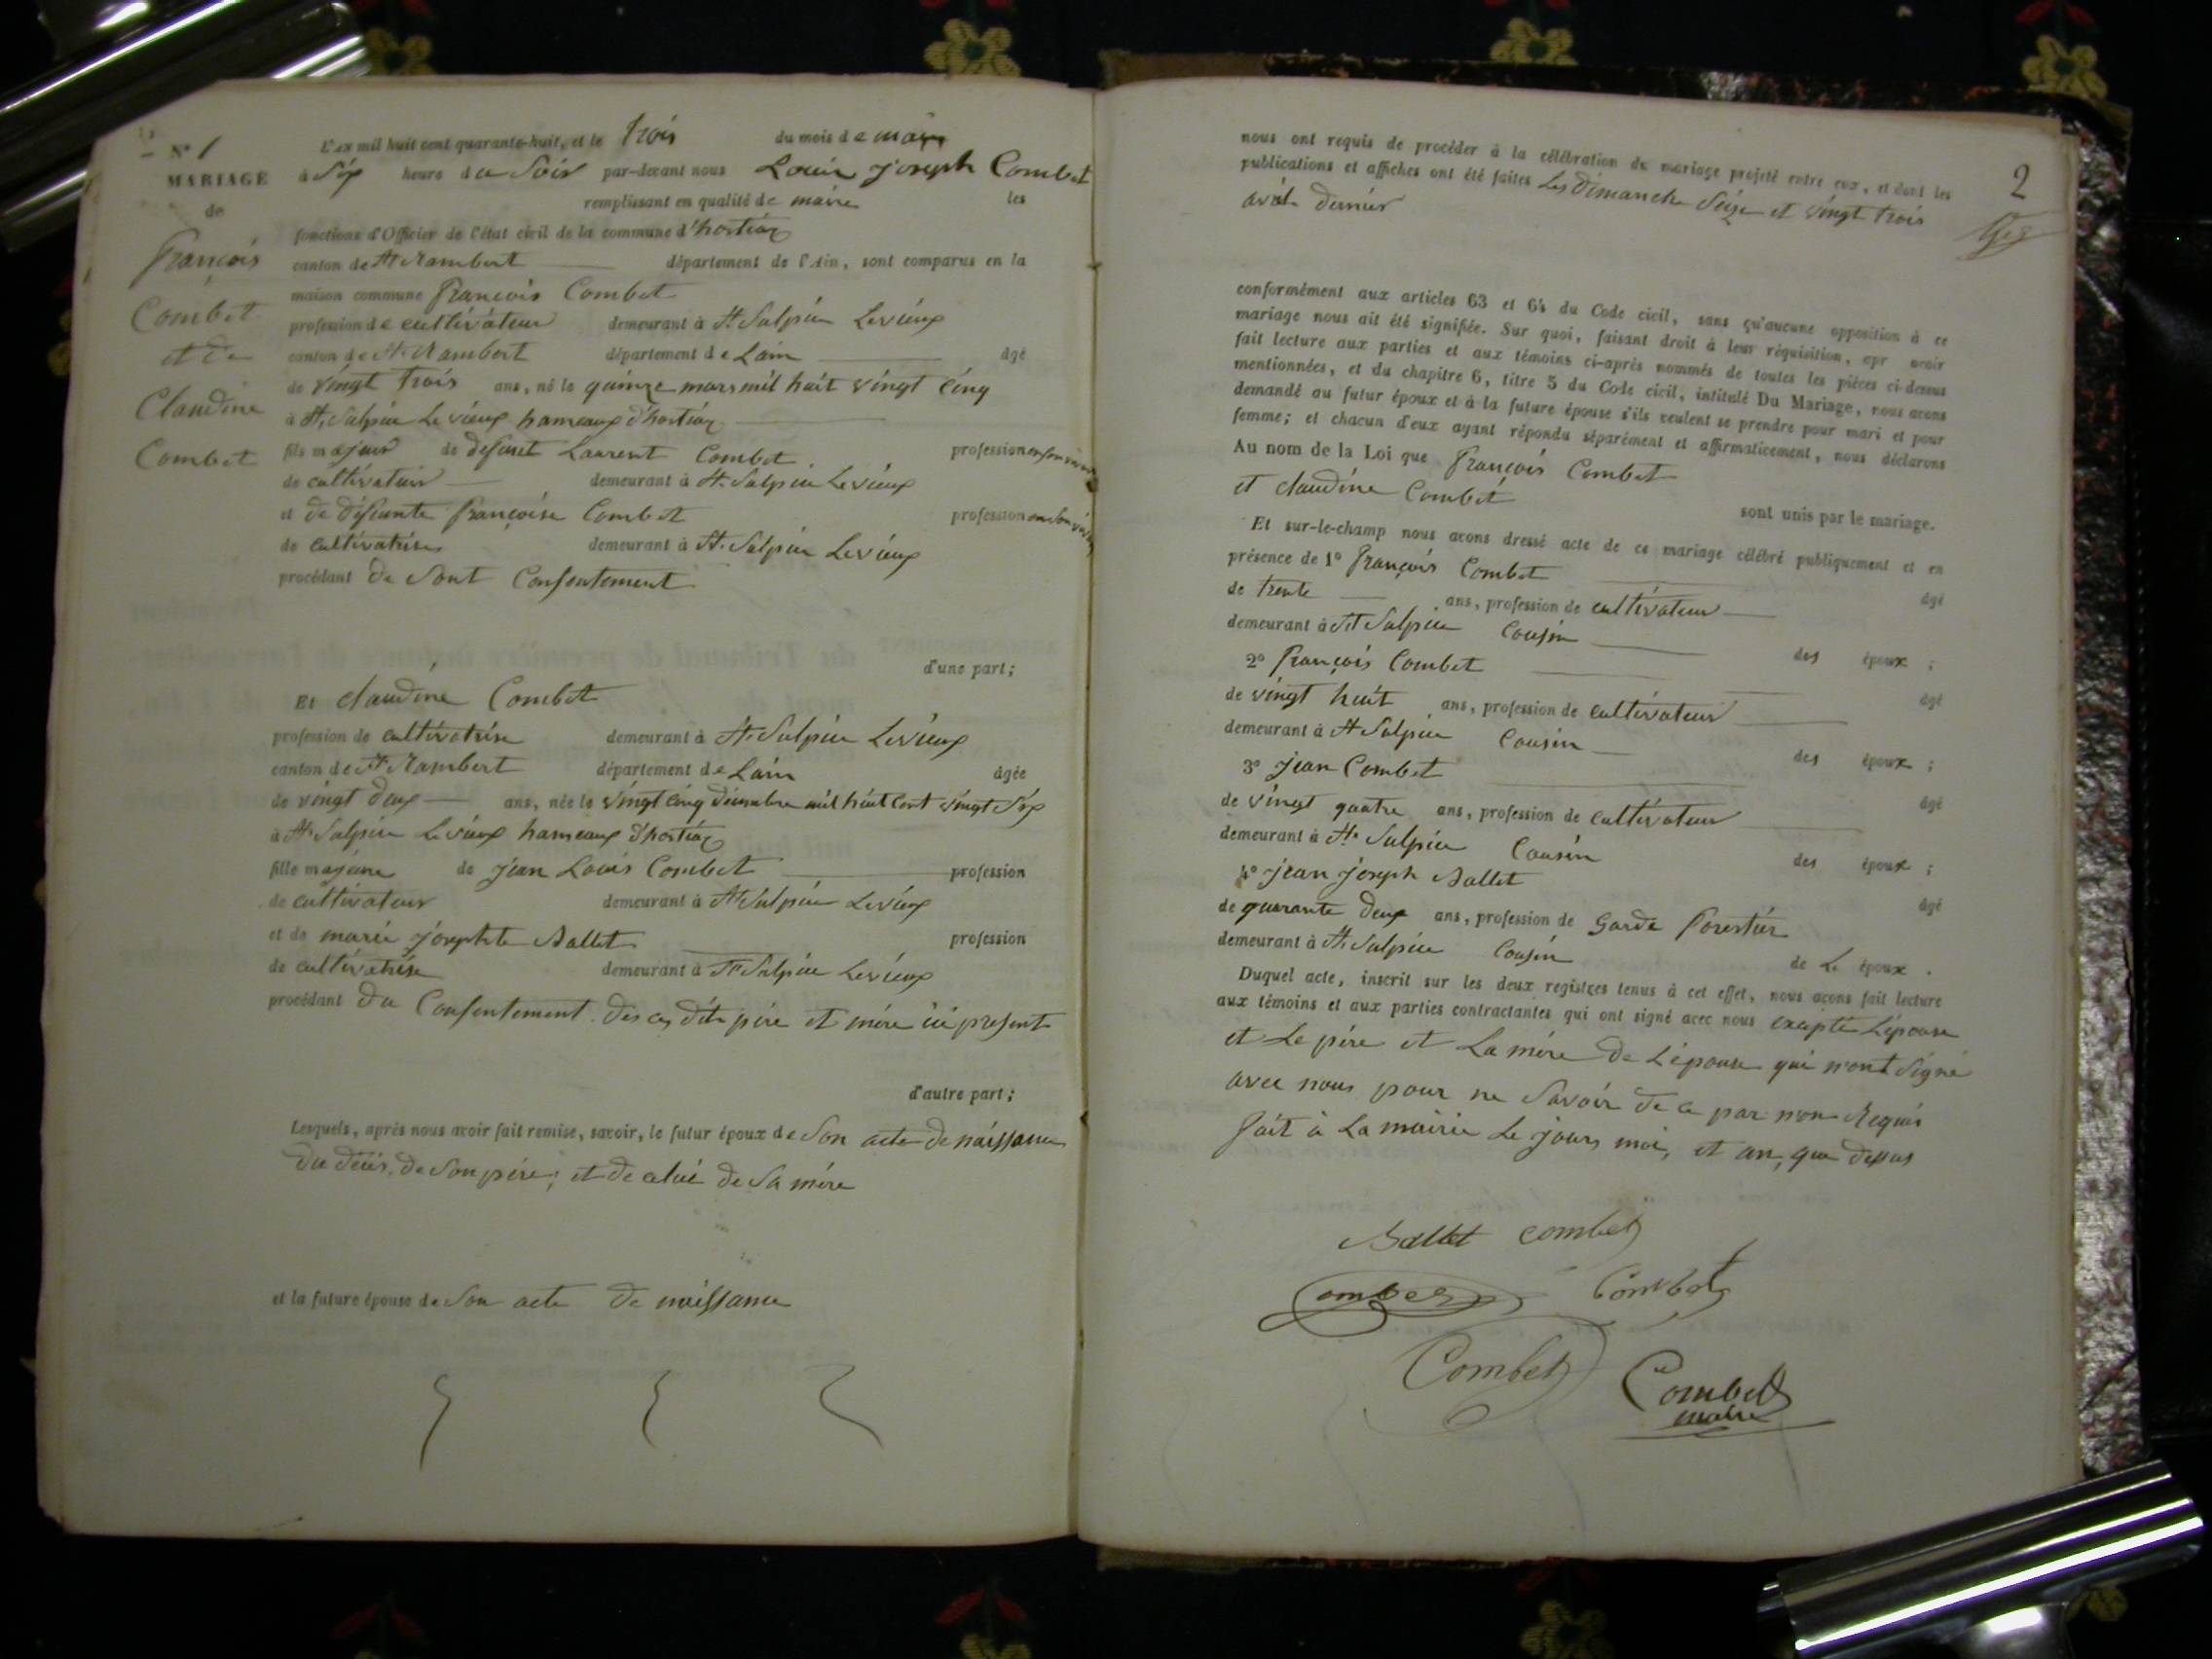 N° 1
MARIAGE
de
François
Combet
et de
Claudine
Combet
L'an mil huit cent quarante-huit, et le trois du mois de mai
à Six heure du Soir par-devant nous Louis Joseph Combet
remplissant en qualité de maire les
fonctions d'Officier de l'état civil de la commune d'hostiaz
canton de St Rambert département de l'Ain, sont comparus en la
maison commune François Combet
profession de cultivateur demeurant à St Sulpice Levieux
canton de St Rambert département de Lain âgé
de vingt trois ans, né le quinze mars mil huit vingt cinq
à St Sulpice Le vieux hameaux d'hostiaz
fils majeur de defunt Laurent Combet profession en son vivant
de cultivateur demeurant à St Sulpice Levieux
et de défunte françoise Combet profession en son vivant
de cultivatrice demeurant à St Sulpice Levieux
procédant de Sont Consentement
d'une part;
Et claudine Combet
profession de cultivatrise demeurant à St Sulpice Levieux
canton de St Rambert département de Lain âgée
de vingt deux ans, née le vingt cinq décembre mil huit cent vingt Six
à St Sulpice Levieux hameaux d'hostiaz
fille majeure de jean Louis Combet profession
de cultivateur demeurant à St Sulpice Levieux
et de marie josephte Ballet profession
de cultivatrise demeurant à St Sulpice Levieux
procédant du Consentement des ces dits père et mère ici present
d'autre part;
Lesquels, après nous avoir fait remise, savoir, le futur époux de Son acte de naissance
du décès de Son père; et de celui de Sa mère
et la future épouse de Son acte de naissance
2
nous ont requis de procéder à la célébration du mariage projeté entre eux, et dont les
publications et affiches ont été faites Les Dimanche Seize et vingt trois
avril dernier
conformément aux articles 63 et 64 du Code civil, sans qu'aucune opposition à ce
mariage nous ait été signifiée. Sur quoi, faisant droit à leur réquisition, apr avoir
fait lecture aux parties et aux témoins ci-après nommés de toutes les pièces ci-dessus
mentionnées, et du chapitre 6, titre 5 du Code civil, intitulé Du Mariage, nous avons
demandé au futur époux et à la future épouse s'ils veulent se prendre pour mari et pour
femme; et chacun d'eux ayant répondu séparément et affirmativement, nous déclarons
Au nom de la Loi que François Combet
et claudine Combet
sont unis par le mariage.
Et sur-le-champ nous avons dressé acte de ce mariage célébré publiquement et en
présence de 1° François Combet âgé
de trente ans, profession de cultivateur
demeurant à St Sulpice Cousin des époux;
2° François Combet âgé
de vingt huit ans, profession de cultivateur
demeurant à St Sulpice Cousin des époux;
3° jean Combet âgé
de vingt quatre ans, profession de cultivateur
demeurant à St Sulpice Cousin des époux;
4° jean joseph Ballet âgé
de quarante deux ans, profession de Garde Forestier
demeurant à St Sulpice Cousin de L époux.
Duquel acte, inscrit sur les deux registres tenus à cet effet, nous avons fait lecture
aux témoins et aux parties contractantes qui ont signé avec nous excepté L'épouse
et Le père et La mère de L'épouse qui n'ont Signé
avec nous pour ne Savoir de ce par nous Requis
fait à La mairie Le jours moi, et an, que dessus
Ballet combet
Combet Combet
Combet Combet
maire